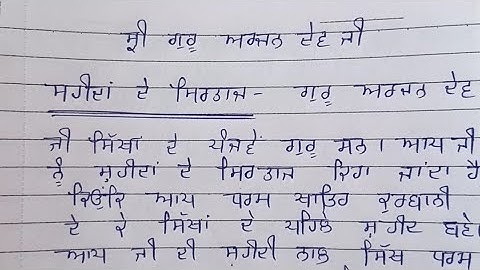 ਸ਼੍ਰੀ ਗੁਰੂ ਅਰਜਨ ਦੇਵ ਜੀ
ਸ਼ਹੀਦਾਂ ਦੇ ਸਿਰਤਾਜ - ਗੁਰੂ ਅਰਜਨ ਦੇਵ
ਜੀ ਸਿੱਖਾਂ ਦੇ ਪੰਜਵੇਂ ਗੁਰੂ ਸਨ। ਆਪ ਜੀ
ਨੂੰ ਸ਼ਹੀਦਾਂ ਦੇ ਸਿਰਤਾਜ ਕਿਹਾ ਜਾਂਦਾ ਹੈ
ਕਿਉਂਕਿ ਆਪ ਧਰਮ ਖਾਤਿਰ ਕੁਰਬਾਨੀ
ਦੇ ਕੇ ਸਿੱਖਾਂ ਦੇ ਪਹਿਲੇ ਸ਼ਹੀਦ ਬਣੇ।
ਆਪ ਜੀ ਦੀ ਸ਼ਹੀਦੀ ਨਾਲ ਸਿੱਖ ਧਰਮ